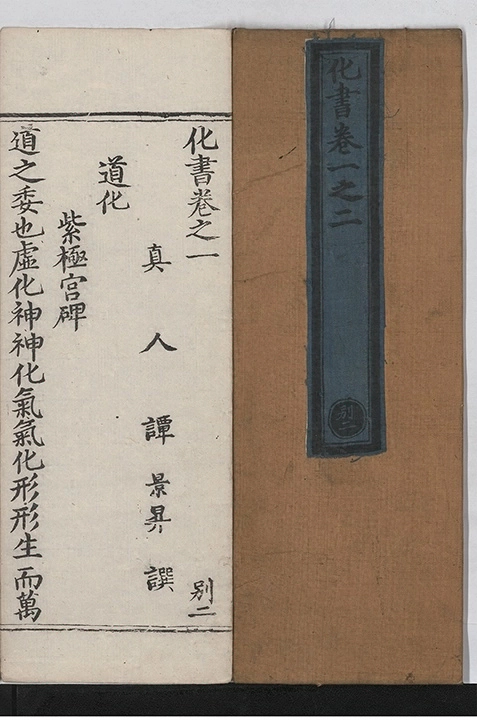 化書卷一之二
別二
化書卷之一
別二
真人譚景昇撰
道化
紫極宮碑
道之委也虛化神神化氣氣化形形生而萬